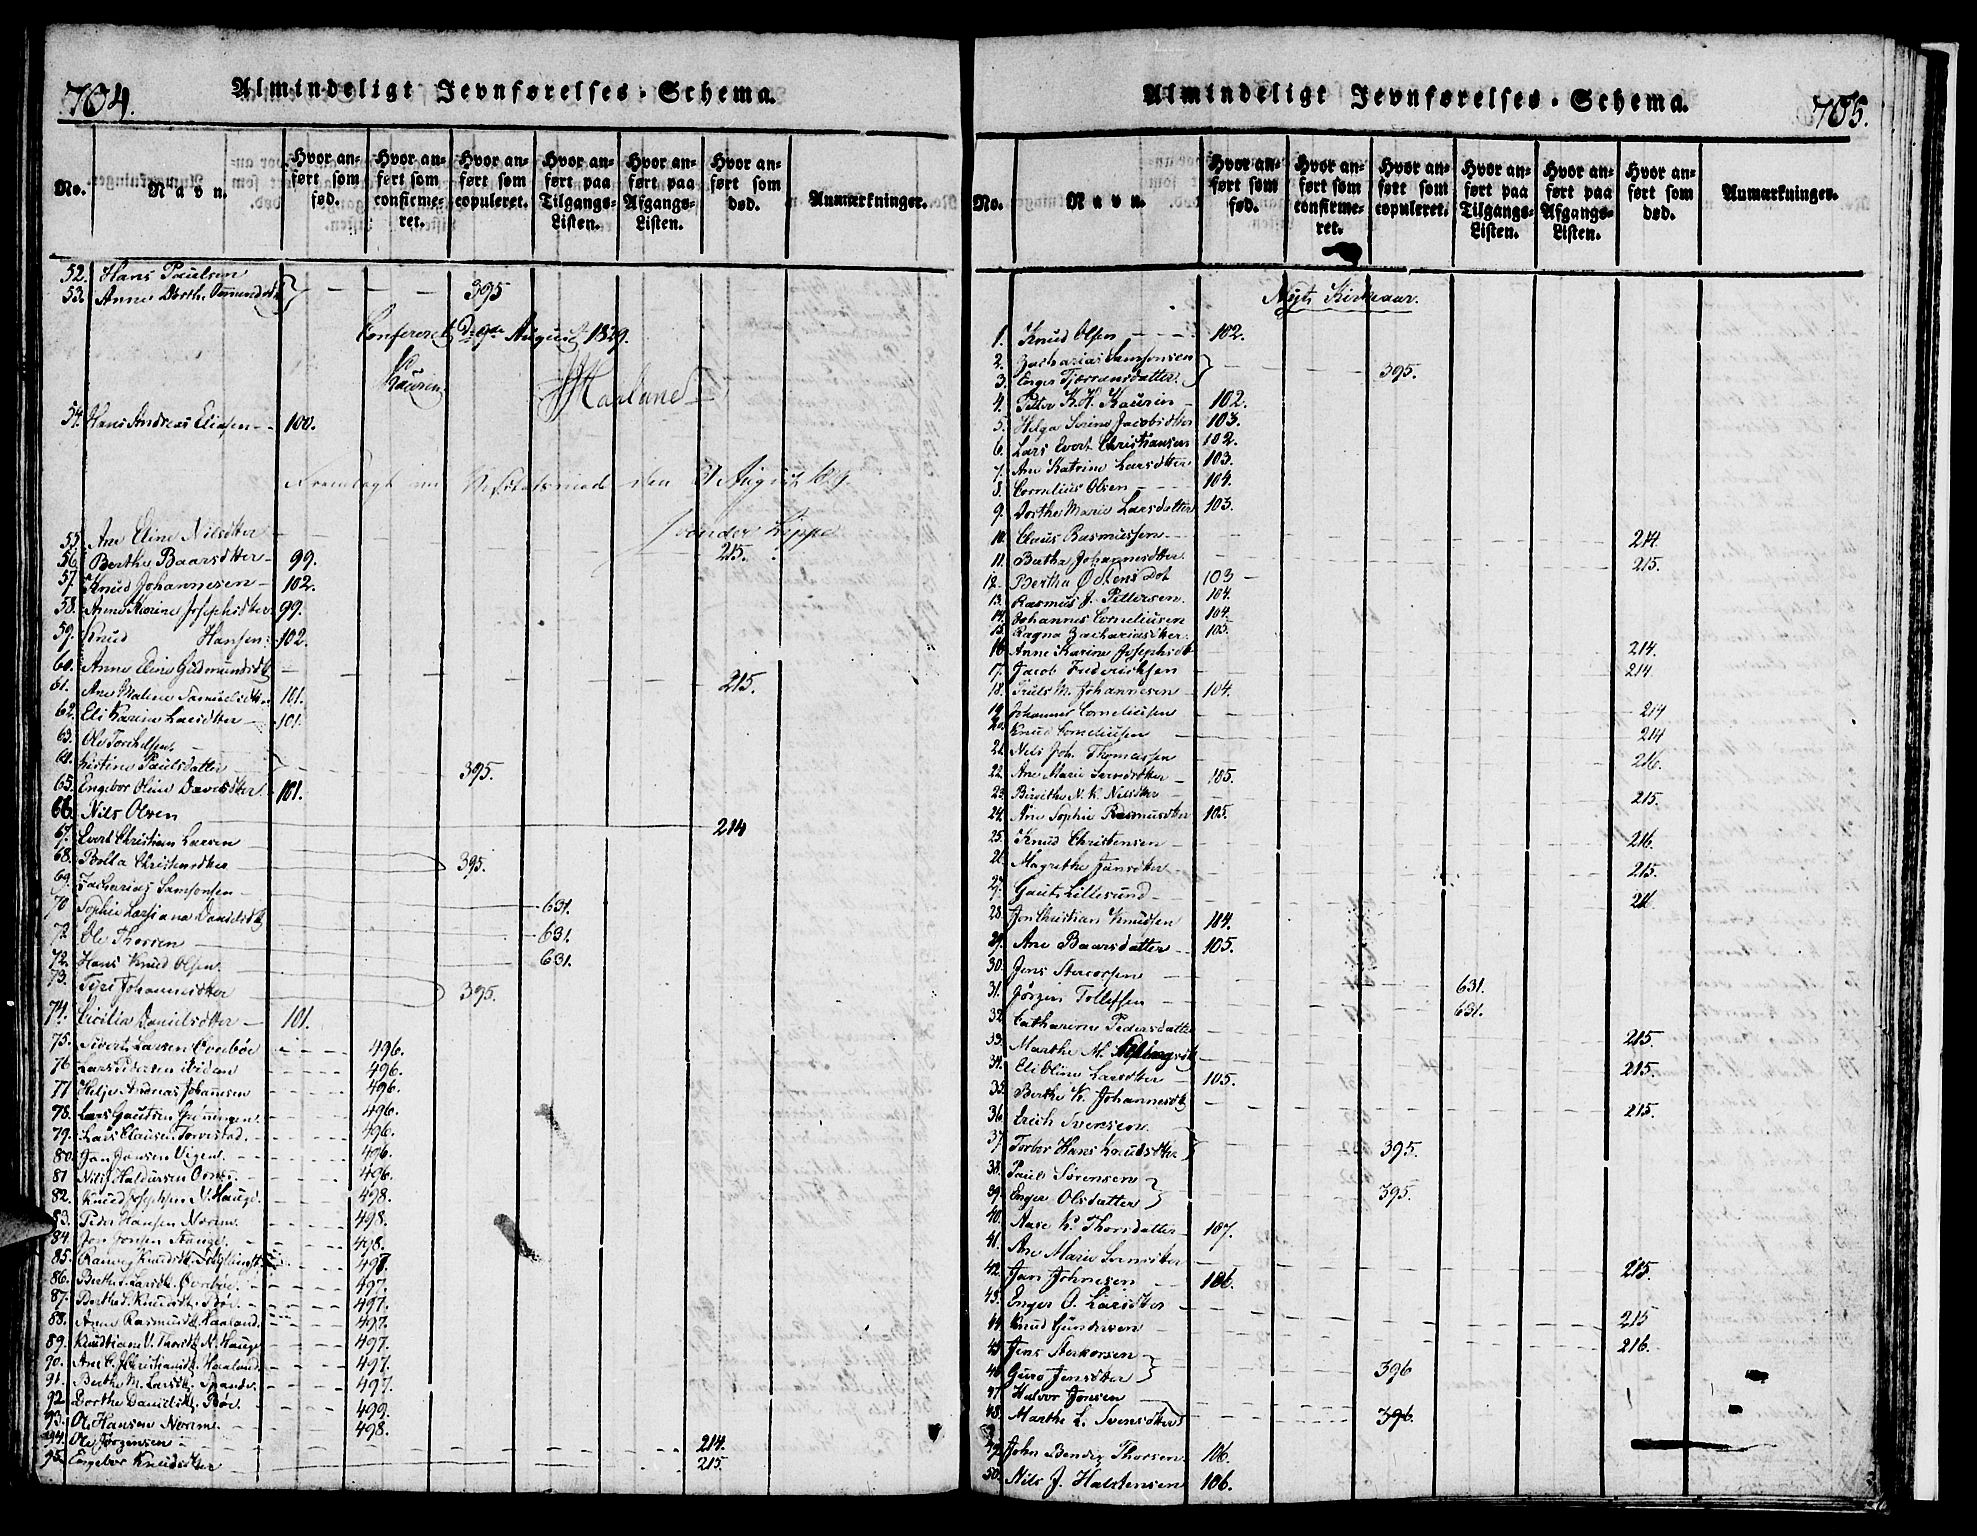 704.
Almindeligt Jevnførelses-Schema.
No.
Navn.
Hvor anført som fød.
Hvor anført som confirmeret.
Hvor anført som copuleret.
Hvor anført paa Tilgangs-Listen.
Hvor anført paa Afgangs-Listen.
Hvor anført som død.
Anmærkninger.
52. Hans Paulsen
53. Anne Dorthe 395
Confereret August 1829.
Kaurin
54. Hans Andreas Eliasen 100.
Fremlagt den August
von der Lippe
55. Ane Eline Nilsdtter 215.
56. Berthe Baarsdtter 99.
57. Knud Johannesen 102.
58. Anne Karine Josephsdtter 99.
59. Knud Hansen 102.
60. Anne Eline Gudmundsdt 215.
61. Ane Malene Samuelsdtter 101.
62. Eli Karine Larsdtter 101.
63. Ole Torkelsen
64. Kistine Paulsdatter 395.
65. Engebor Oline Davidsdtter 101.
66. Nils Olsen 214
67. Evert Christian Larsen
68. Bolla Christensdtter 395.
69. Zacharias Samsonsen 631.
70 Sophie Danielsdt 631.
Ole Thorsen 631.
72. Hans Knud Olsen
73. Siri Johannesdtter 395.
74. Cicilia Danielsdtter 101.
75. Sivert Larsen Ovrebøe 496.
76 Lars Pedersen ibidem 496.
77 Helje Andreas Johannesen 496.
78. Lars Gautsen 496.
79. Lars Clausen Torvestad. 496.
80. Jan Jansen Vigene 496.
81 Nils Haldorsen 496.
82. Knud Josephsen N. Hauge. 498.
83. Peder Hansen Norem. 498.
84 Jon Jonsen Stange. 498.
85. Ranveg Knudsdt. 497.
86. Berthe Larsdt. Ovrebøe 497.
87. Berthe Knudsdt. Bøe. 497.
88. Anne Rasmusdt. Haaland. 497.
89. N. Hauge 497.
90. Ane C. Christiansdt. Haaland 497.
91. Berthe M. Larsdt. 497.
92 Dorthe Danielsdt. Bøe. 499.
93. Ole Hansen Norem. 498.
94. Ole Jørgensen 214.
95. Engebor Knudsdtter 215.
Almindeligt Jevnførelses-Schema.
705.
No.
Navn.
Hvor anført som fød.
Hvor anført som confirmeret.
Hvor anført som copuleret.
Hvor anført paa Tilgangs-Listen.
Hvor anført paa Afgangs-Listen.
Hvor anført som død.
Anmærkninger.
Nyt Kirkeaar.
1. Knud Olsen 102.
2. Zacharias Samsonsen
3. Enger Tjerransdatter 395.
4. Petter K. H. Kaurin 102.
5. Helga Serine Jacobsdtter 103.
6. Lars Evert Christiansen 102.
7. Ane Katrine Larsdtter 103.
8. Cornelius Olsen 104.
9. Dorthe Marie Larsdatter 103.
10. Claus Rasmussen 214
11. Bertha Johannesdtter 215.
12. Bertha Østens Dot 103
13. Rasmus J. Pettersen. 104.
14. Johannes Corneliusen 104.
15. Ragna Zachariasdtter. 105.
16. Anne Karine Josephsdt 214.
17. Jacob Frederichsen 214
18. Truls M. Johannesen 104.
19. Johannes Corneliusen 214
20. Knud Corneliusen 214
21. Nils Joh. Thomassen 216.
22. Ane Marie Svendsdtter 105.
23. Birgithe N. K. Nilsdtter 215.
24. Ane Sophie Rasmusdtter 105.
25. Knud Christensen 216.
26. Magrethe Jansdtter 215.
27. Gaut Lillesund 21
28. Jon Christian Knudsen 104.
29. Ane Baarsdatter 105.
30. Jens Stercorsen 631.
31. Jørgen Tollefsen 631.
32. Catharine Pedersdatter 215.
33. Marthe M. 215.
34. Eli Oline Larsdtter 105.
35. Berthe K. Johannesdt 215.
36. Erich Svensen
37. Torbor Hans Knudsdtter 395.
38. Paul Sørensen
39. Enger Olsdatter 395.
40. Aase K. Thorsdatter 107.
41. Ane Marie Svensdtter 215.
42. Jan Johnesen 106.
43. Enger O. Larsdtter 215
44. Knud Gundersen 216.
45. Jens Sterkorsen
46. Guro Jensdtter 396
47. Halvor Jonsen
48. Marthe L. Svensdtter 396.
49. John Bendix Thorsen 106.
50. Nils J. Halstensen 106.